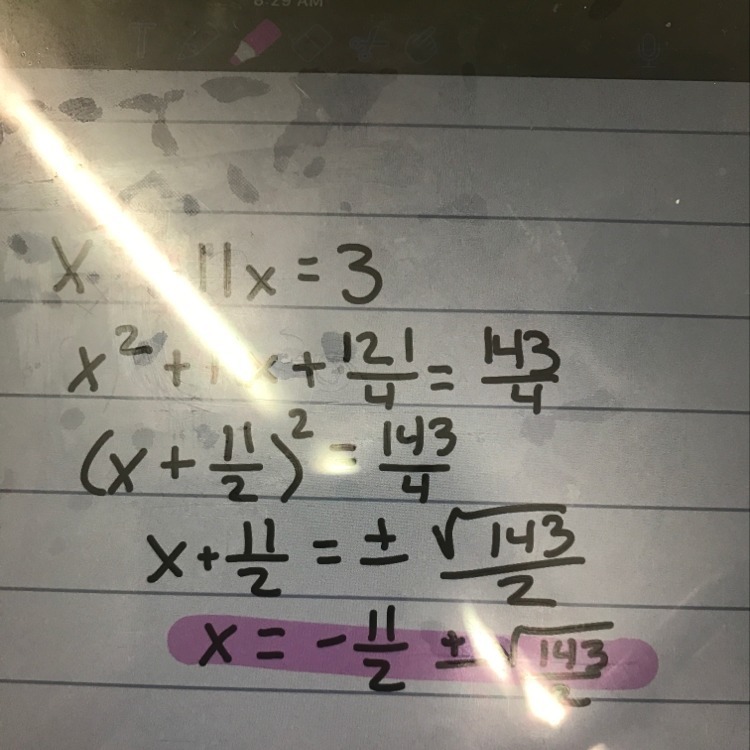 8:29 AM
x 11x = 3
x² + x + 121/4 = 143/4
(x + 11/2)² = 143/4
x + 11/2 = ± √143/2
x = - 11/2 ± √143/2